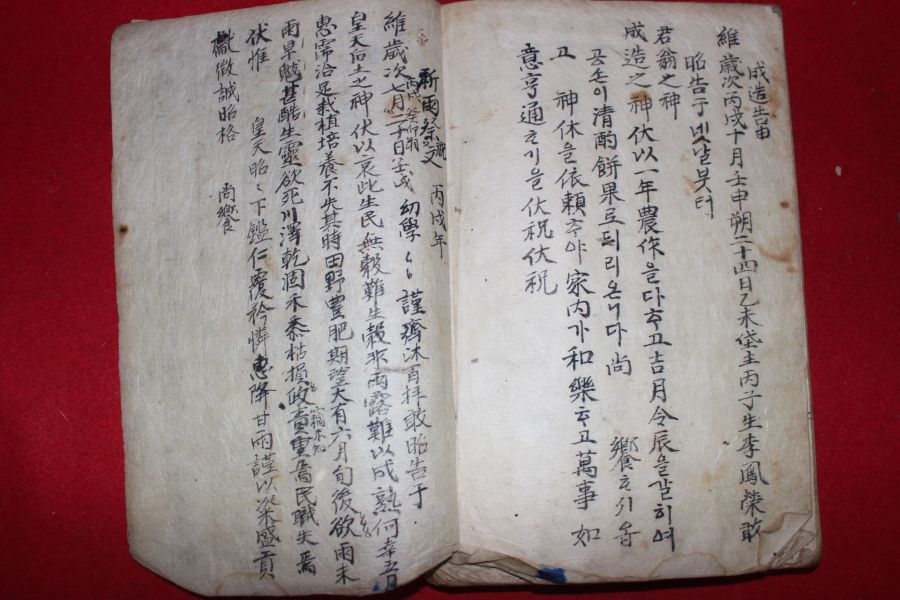 成造告由
維歲次丙戌十月壬申朔二十四日乙未垈主丙子生李鳳榮敢
昭告于녯날붓터
君翁之神
成造之神 伏以一年農作을다하고吉月令辰을갈히여
공손이淸酌餠果로듸리온니다 尙
饗하시옵
고 神休을依賴하야 家內가和樂하고萬事 如
意亨通하기을伏祝伏祝
祈雨祭祝文 丙戌年
維歲次七月 二十日壬戌 幼學〻 謹齊沐百拜敢昭告于
皇天后土之神 伏以哀此生民無穀難生穀非雨露難以成熟何幸五月
惠霈洽足栽植培養不失其時田野豊肥期望大有六月旬後欲雨未
雨旱魃甚酷生靈欲死川澤乾涸禾黍枯損政責 焉民職失焉
伏惟 皇天昭〻下鑑仁覆矜憐惠降甘雨謹以粢盛貢
獻微誠昭格 尙饗